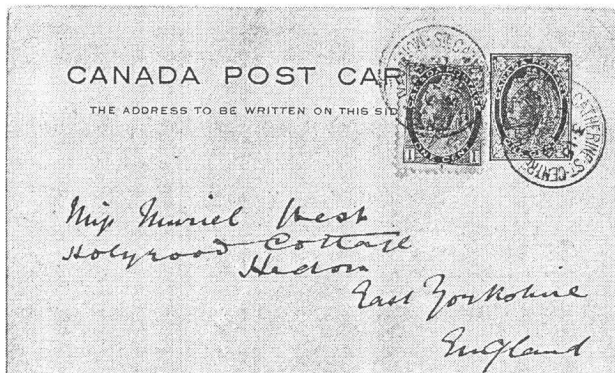 CANADA POST CAR
THE ADDRESS TO BE WRITTEN ON THIS SID
1 1
CATHERINE-ST-CENTRE
Miss Muriel West
Holyrood Cottage
Hedon
East Yorkshire
England